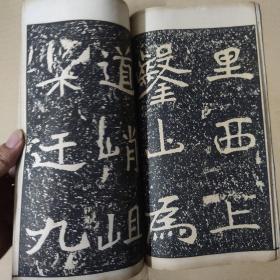 里西上
鑿山為
道峭岨
槃迂九